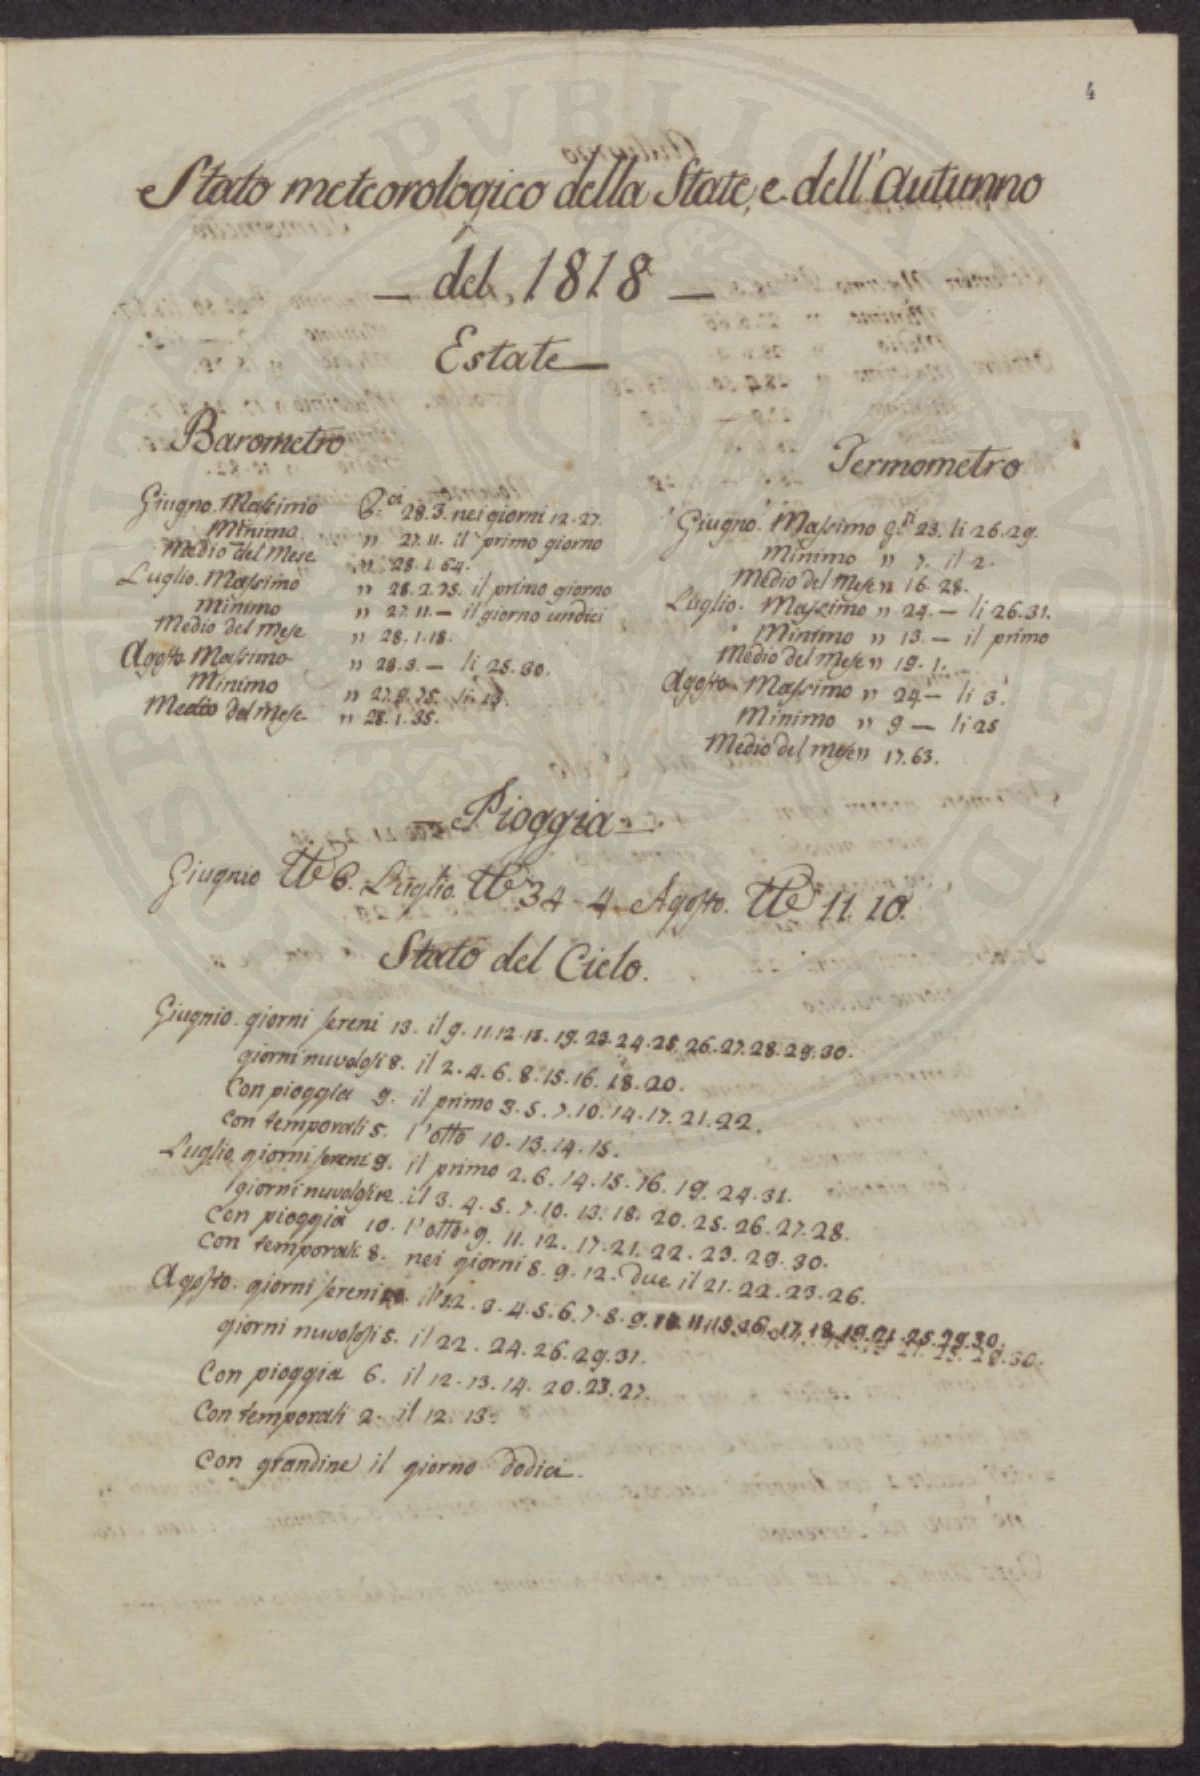 4
Stato meteorologico della State, e dell'Autunno
— del, 1818 —
Estate —
Barometro
Giugno. Massimo P.ci 28.3. nei giorni 12.27.
Minimo " 27.11. il primo giorno
Medio del Mese " 28.1.64.
Luglio. Massimo " 28.2.75. il primo giorno
Minimo " 27.11.— il giorno undici
Medio del Mese " 28.1.18.
Agosto. Massimo " 28.3.— li 25.30.
Minimo " 27.9.75. li 13.
Medio del Mese " 28.1.35.
Termometro
Giugno. Massimo g.di 23. li 26.29.
Minimo " 7. il 2.
Medio del Mese " 16.28.
Luglio. Massimo " 24.— li 26.31.
Minimo " 13.— il primo
Medio del Mese " 19.1.
Agosto. Massimo " 24— li 3.
Minimo " 9— li 25
Medio del Mese " 17.63.
— Pioggia —
Giugnio ℔ 6. Luglio. ℔ 34-4. Agosto. ℔ 11.10.
Stato del Cielo.
Giugnio. giorni sereni 13. il 9.11.12.13.19.23.24.25.26.27.28.29.30.
giorni nuvolosi 8. il 2.4.6.8.15.16.18.20.
Con pioggia 9. il primo 3.5.7.10.14.17.21.22.
Con temporali 5. l'otto 10.13.14.15.
Luglio. giorni sereni 9. il primo 2.6.14.15.16.19.24.31.
giorni nuvolosi 12. il 3.4.5.7.10.13.18.20.25.26.27.28.
Con pioggia 10. l'otto 9.11.12.17.21.22.23.29.30.
Con temporali 8. nei giorni 8.9.12. due il 21.22.23.26.
Agosto. giorni sereni il 1.2.3.4.5.6.7.8.9.10.11.15.16.17.18.19.21.25.29.30.
giorni nuvolosi 5. il 22.24.26.29.31.
Con pioggia 6. il 12.13.14.20.23.27.
Con temporali 2. il 12.13.
Con grandine il giorno dodici.